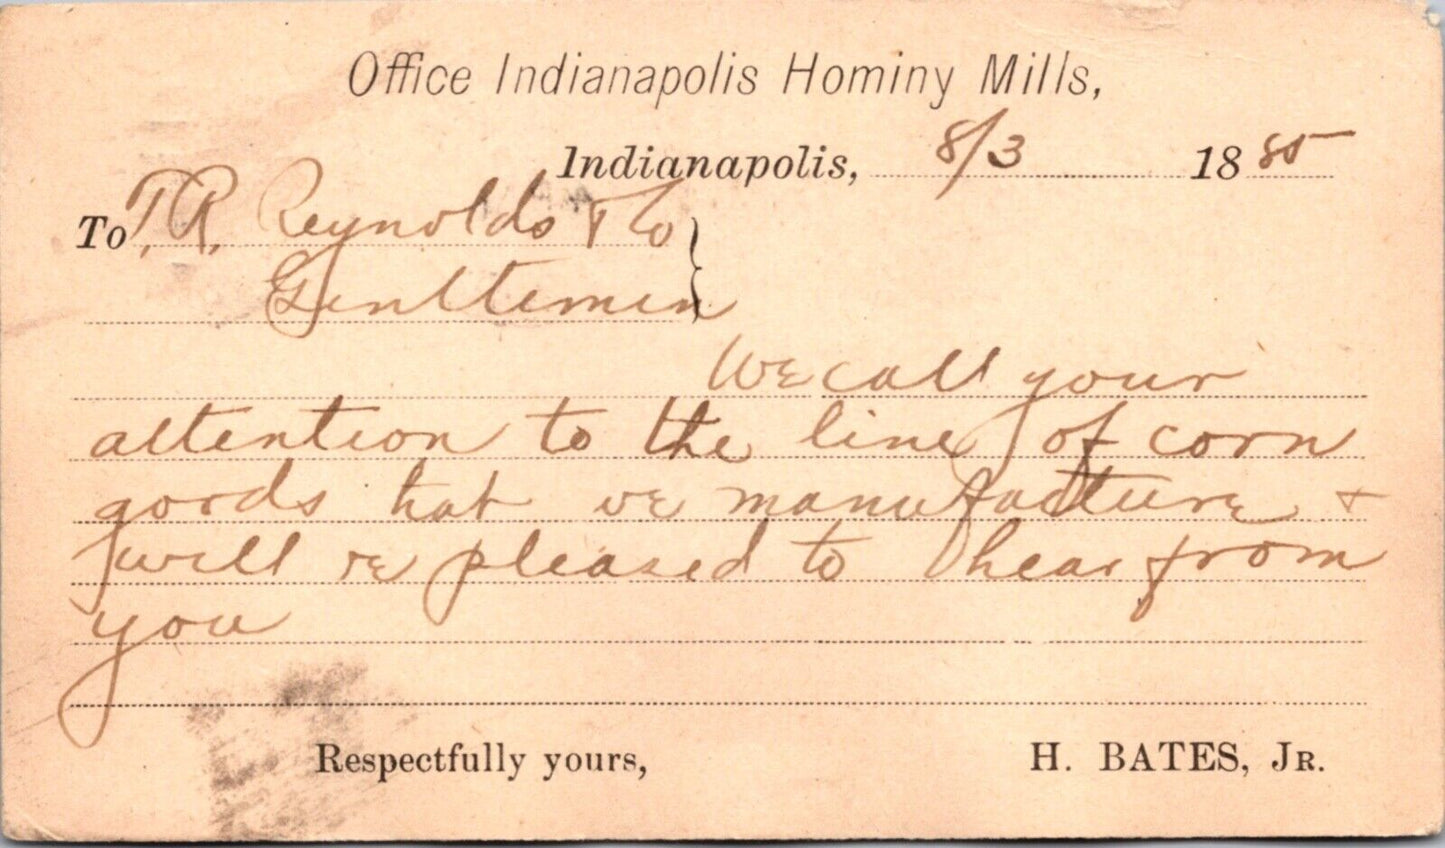 Office Indianapolis Hominy Mills,
Indianapolis, 8/3 1885
To T. R. Reynolds & Co
Gentlemen
We call your
attention to the line of corn
goods that we manufacture &
will be pleased to hear from
you
Respectfully yours, H. BATES, JR.